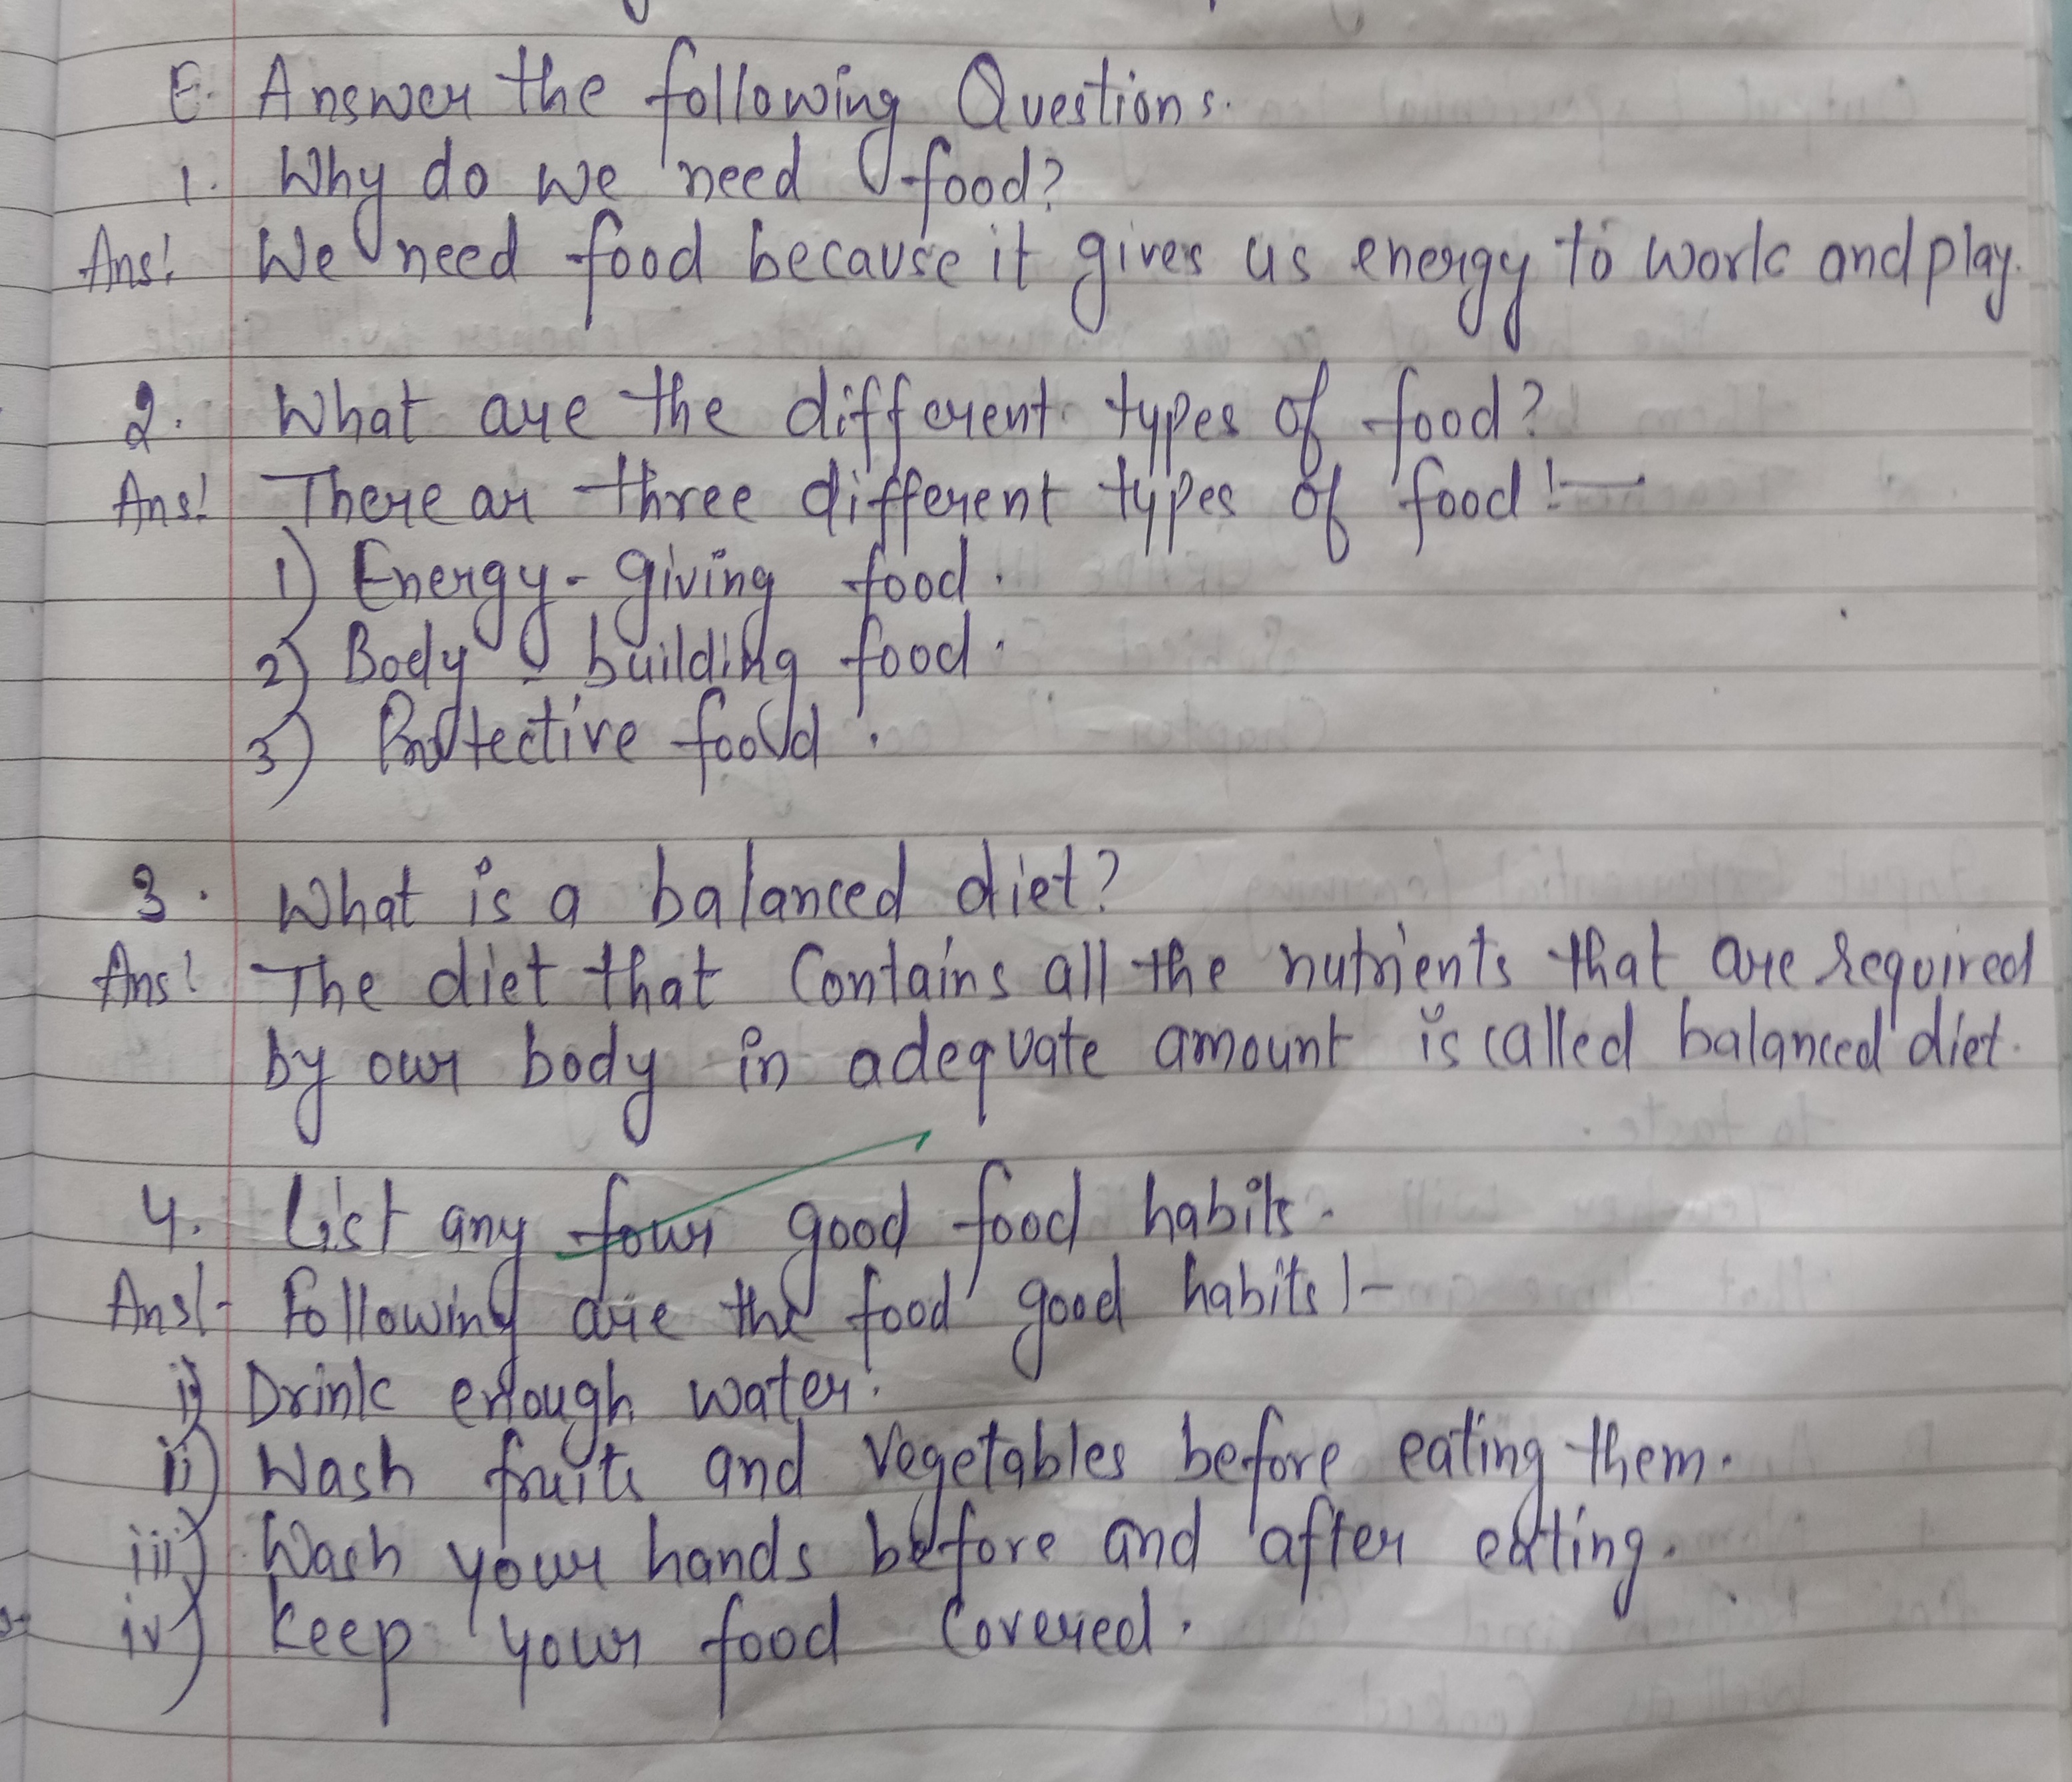 E. Answer the following Questions.
1. Why do we need food?
Ans: We need food because it gives us energy to work and play.
2. What are the different types of food?
Ans: There ar three different types of food :-
1) Energy-giving food.
2) Body-building food.
3) Protective food.
3. What is a balanced diet?
Ans: The diet that contains all the nutrients that are required
by our body in adequate amount is called balanced diet.
4. List any four good food habits.
Ans:- Following are the food good habits :-
i) Drink enough water.
ii) Wash fruits and vegetables before eating them.
iii) Wash your hands before and after eating.
iv) keep your food covered.